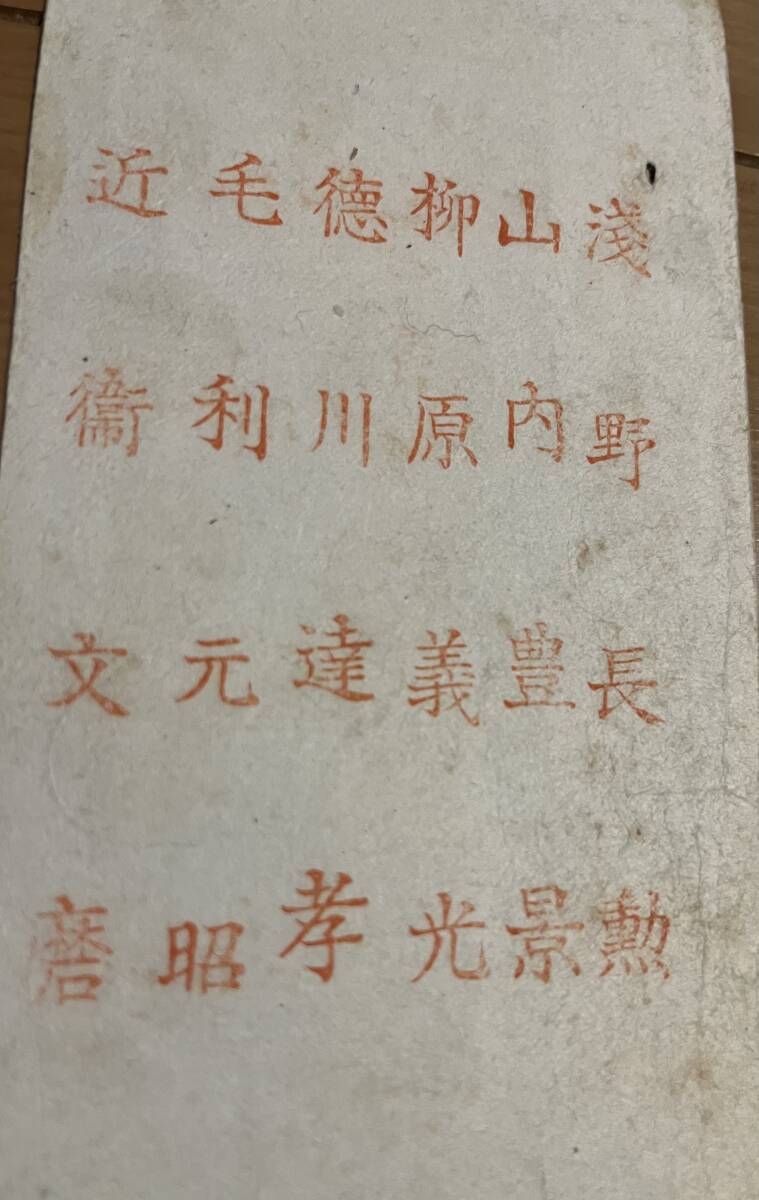 淺野長勲
山内豊景
柳原義光
德川達孝
毛利元昭
近衞文麿